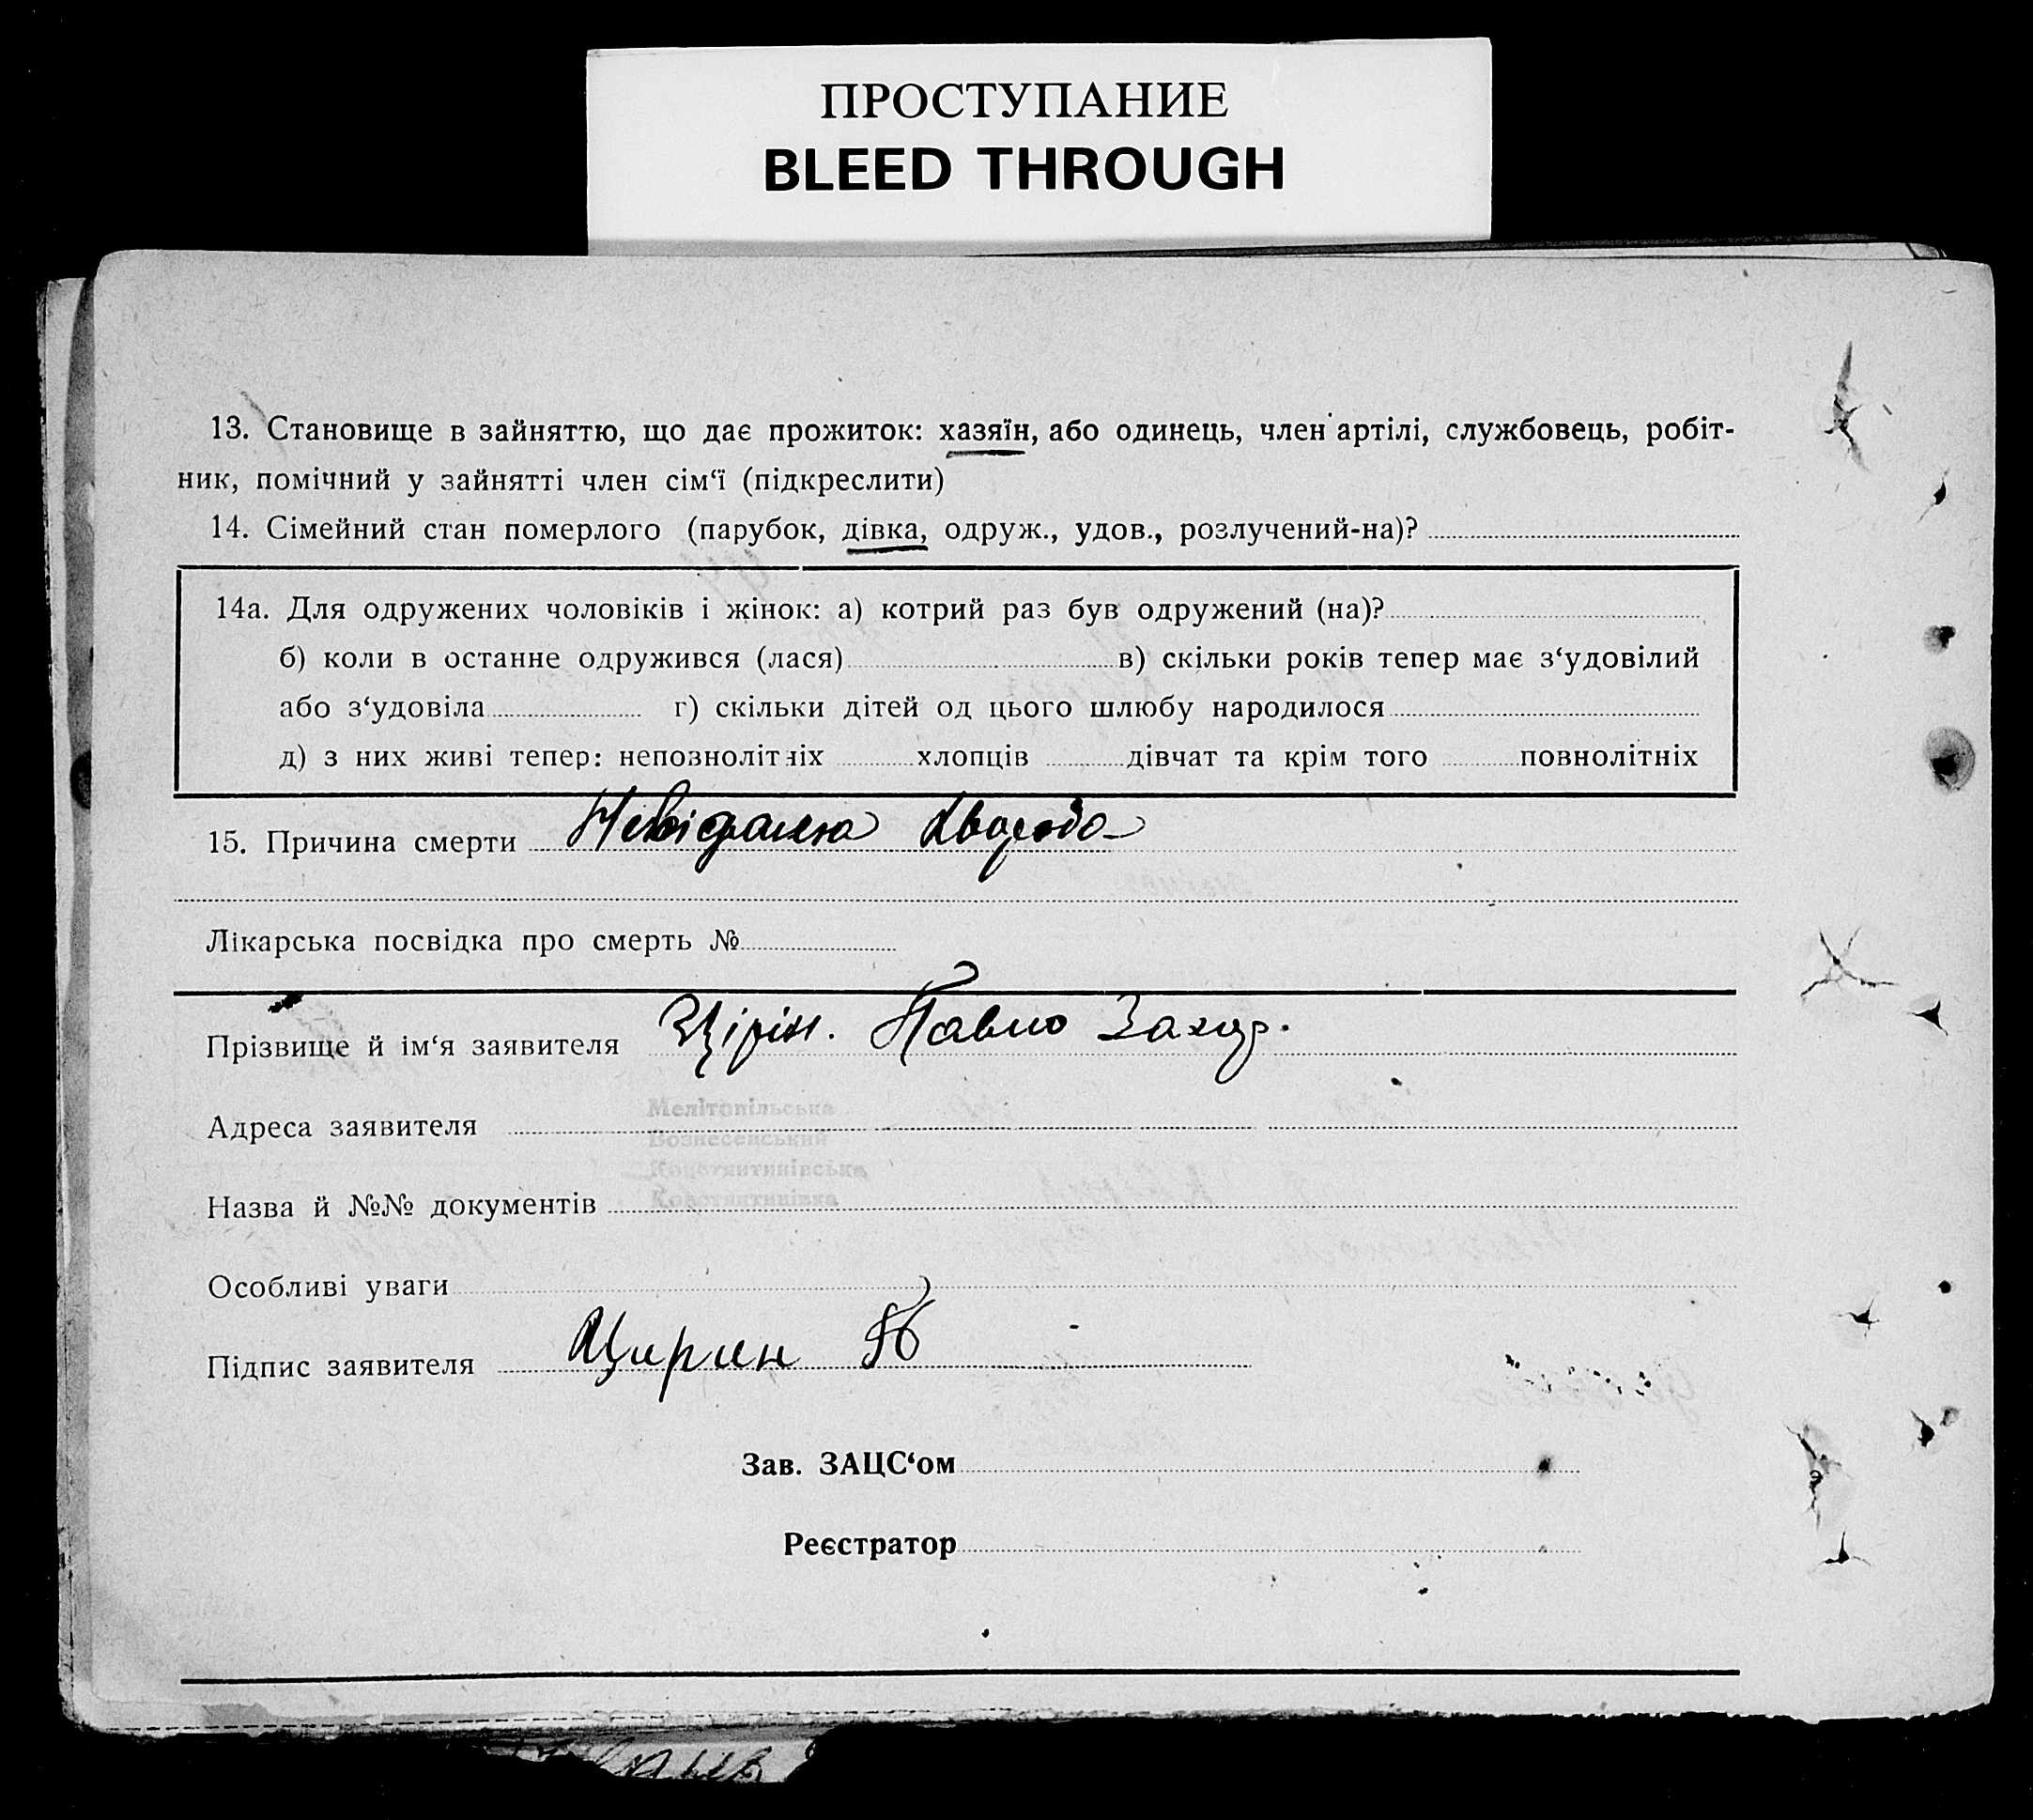 ПРОСТУПАНИЕ
BLEED THROUGH
13. Становище в зайняттю, що дає прожиток: хазяїн, або одинець, член артілі, службовець, робіт-
ник, помічний у зайнятті член сім‘ї (підкреслити)
14. Сімейний стан померлого (парубок, дівка, одруж., удов., розлучений-на)?
14а. Для одружених чоловіків і жінок: а) котрий раз був одружений (на)?
б) коли в останне одружився (лася) в) скільки років тепер має з‘удовілий
або з‘удовіла г) скільки дітей од цього шлюбу народилося
д) з них живі тепер: непознолітніх хлопців дівчат та крім того повнолітніх
15. Причина смерти Невідомая
Лікарська посвідка про смерть №
Прізвище й ім‘я заявителя Цірін. Павло Захар.
Мелітопільська
Адреса заявителя
Вознесенський
Костянтинівська
Костянтинівка
Назва й №№ документів
Особливі уваги
Підпис заявителя Цирин П
Зав. ЗАЦС‘ом
Реєстратор